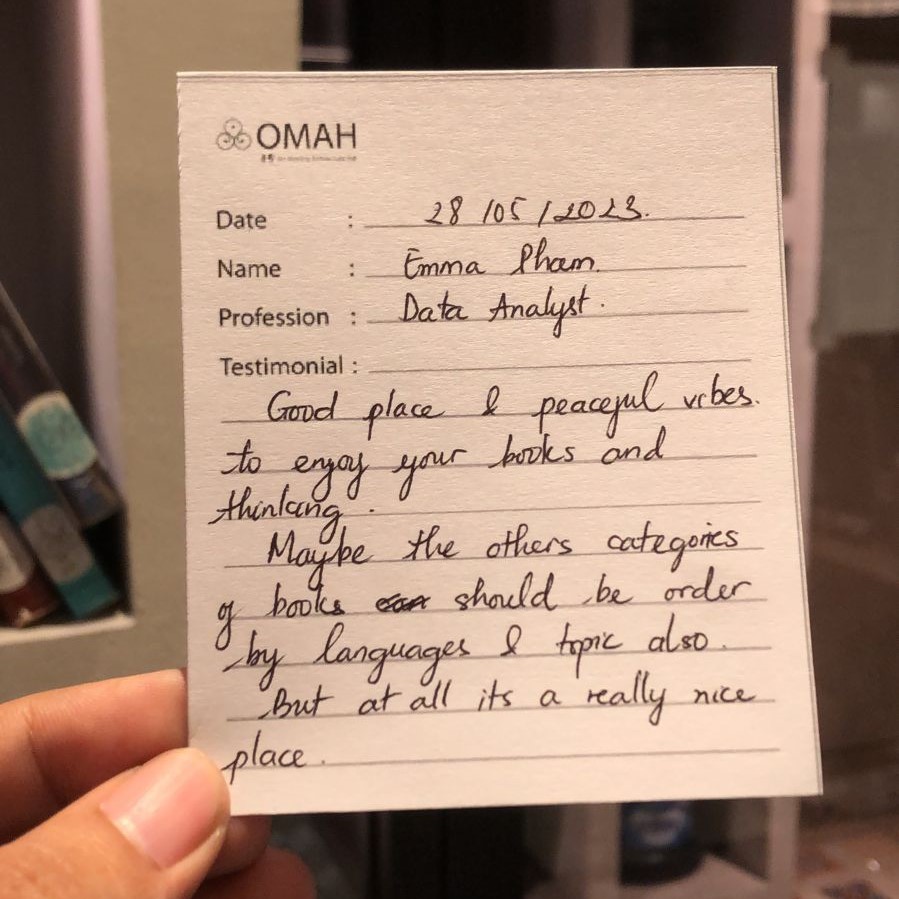 OMAH
Date : 28/05/2023.
Name : Emma Pham.
Profession : Data Analyst.
Testimonial :
Good place & peaceful vibes.
to enjoy your books and
thinking.
Maybe the others categories
of books should be order
by languages & topic also.
But at all its a really nice
place.